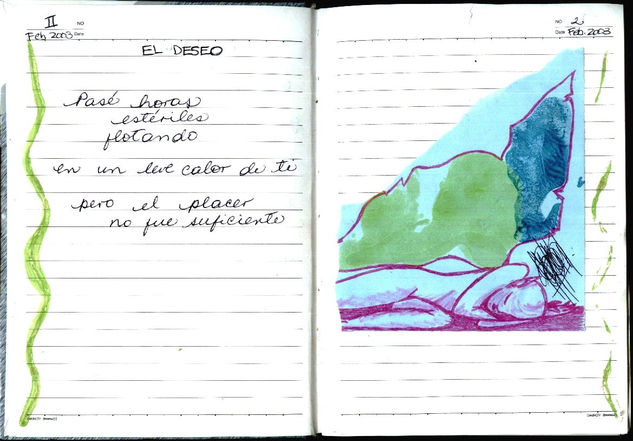 II
NO
Feb 2003 Date
EL DESEO
Pasé horas
estériles
flotando
en un leve calor de ti
pero el placer
no fue suficiente
NO 2
Date Feb. 2003